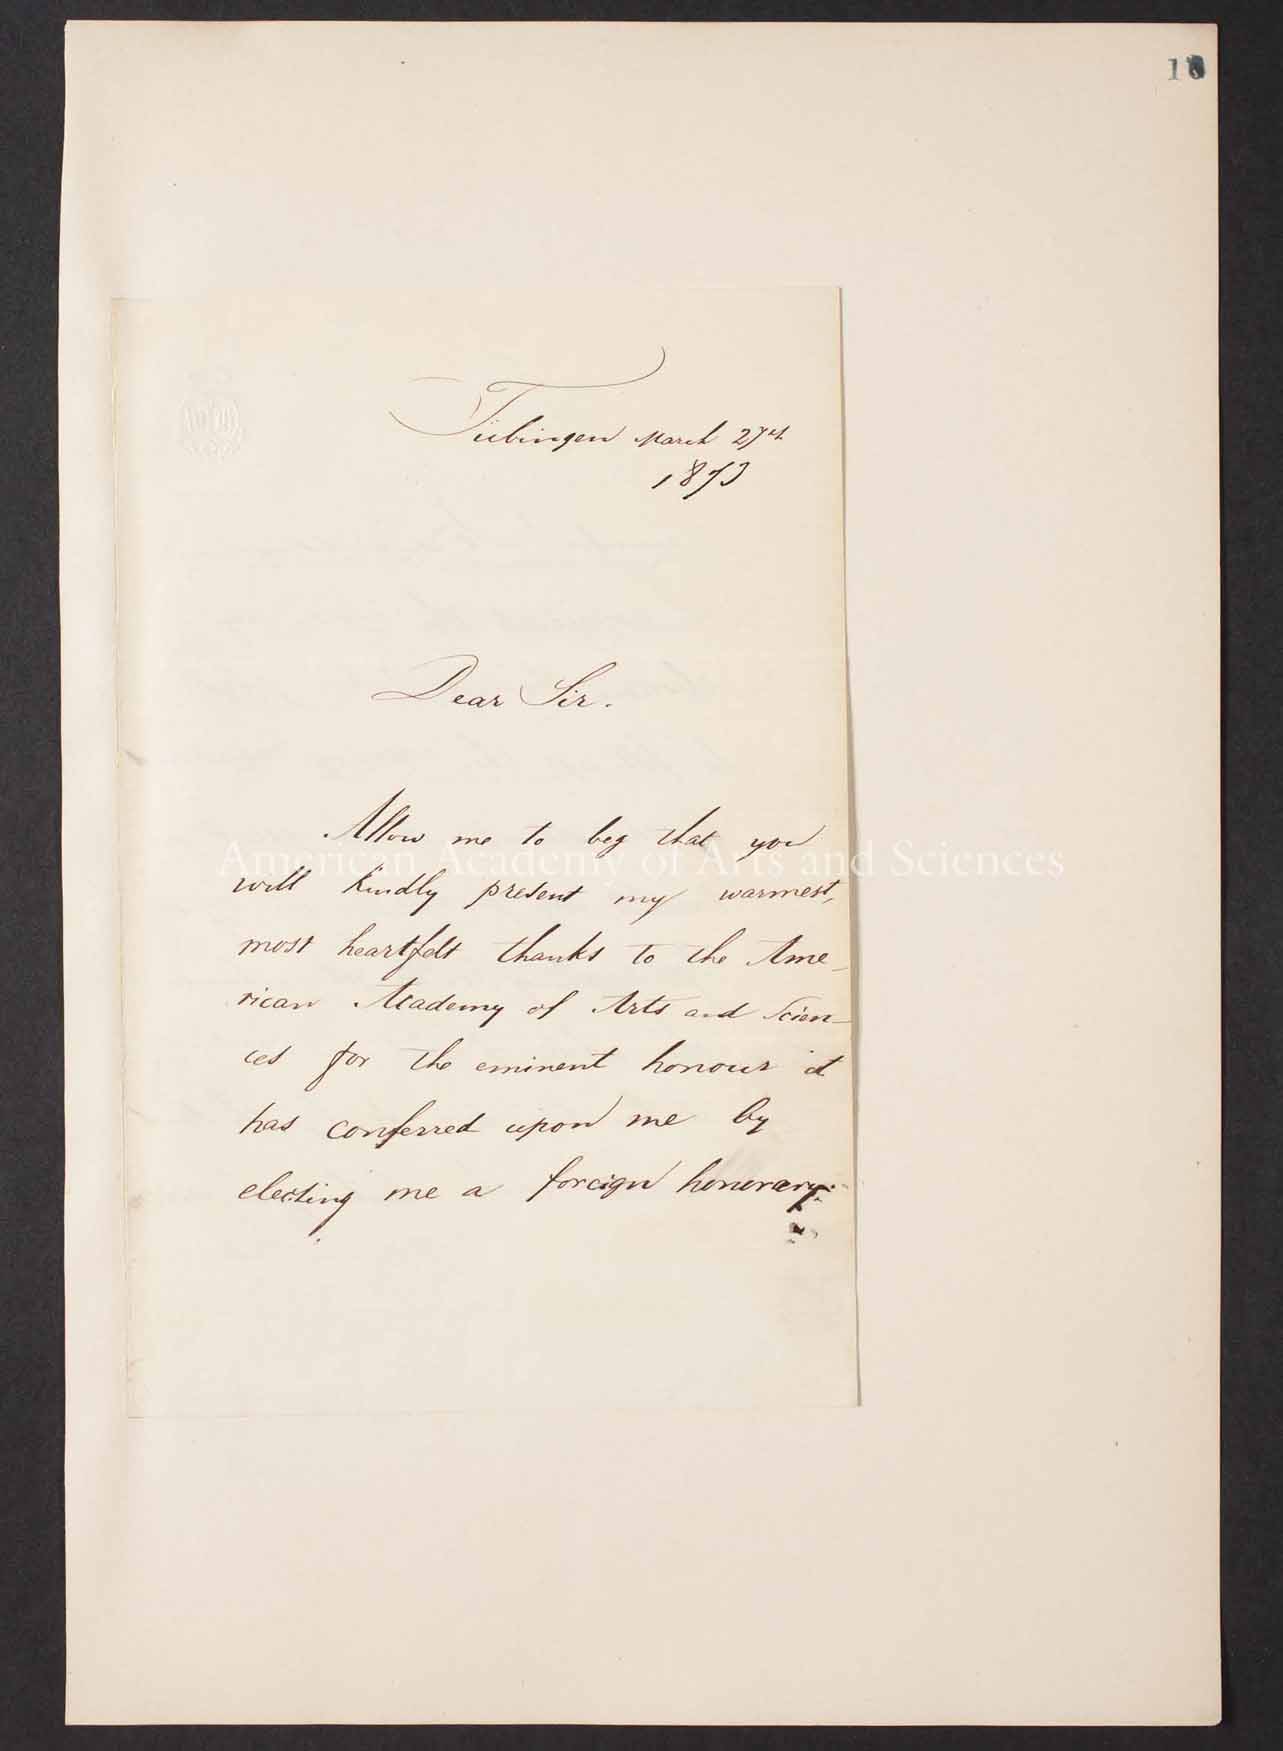 Tübingen March 27th
1873
Dear Sir.
Allow me to beg that you
American Academy of Arts and Sciences
will kindly present my warmest,
most heartfelt thanks to the Ame-
rican Academy of Arts and Scien-
ces for the eminent honour it
has conferred upon me by
electing me a foreign honorary